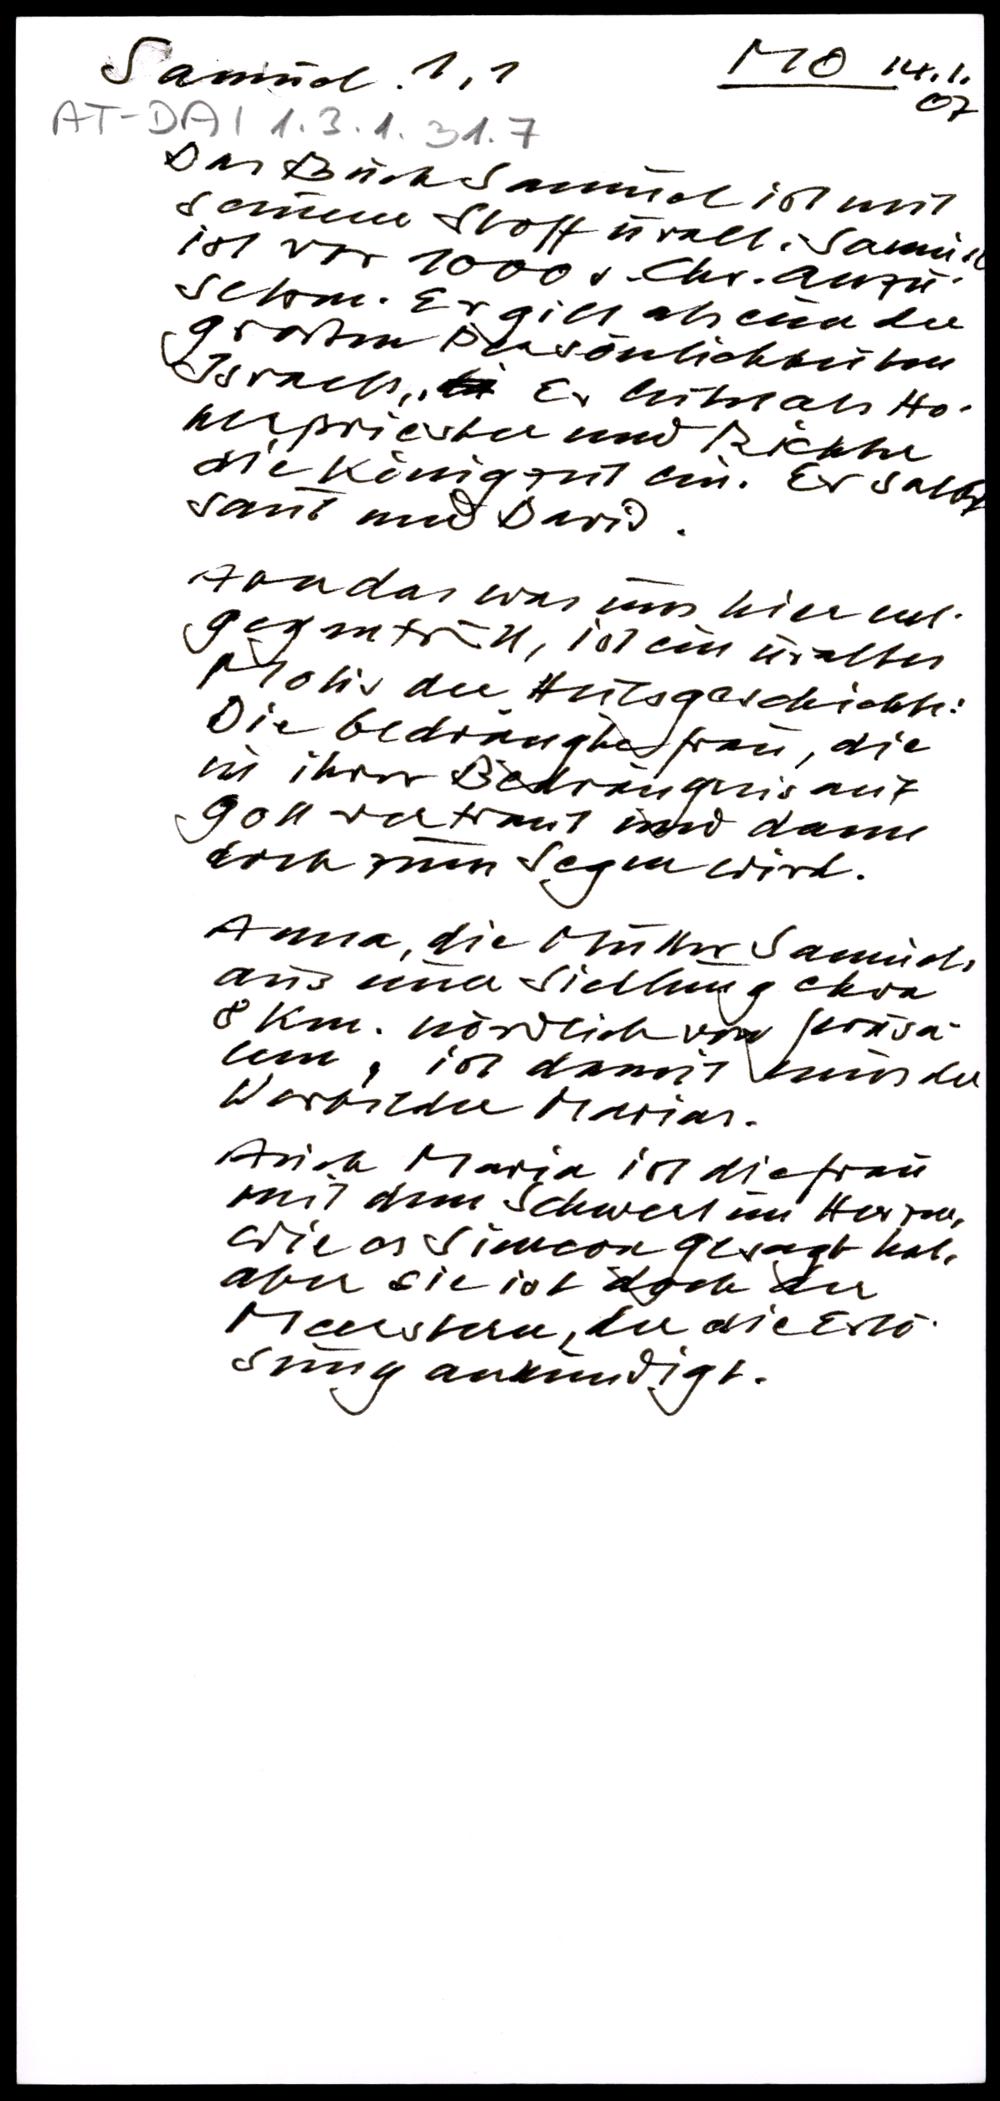 Samuel 1,1
MO 14.1.
07
AT-DAI 1.3.1.31.7
Das Buch Samuel ist mit
seinem Stoff uralt. Samuel
ist vor 1000 v. Chr. anzu-
setzen. Er gilt als eine der
großen Persönlichkeiten
Israels. Er leitet als Ho-
herpriester und Richter
die Königszeit ein. Er salbt
Saul und David.
das was uns hier ent-
gegentritt, ist ein uraltes
Motiv der Heilsgeschichte:
Die bedrängte Frau, die
in ihrer Bedrängnis auf
Gott vertraut und dann
doch zum Segen wird.
Anna, die Mutter Samuels
aus einer Siedlung etwa
8 Km. nördlich von Jerusa-
lem, ist damit eines der
Vorbilder Marias.
Auch Maria ist die Frau
mit dem Schwert im Herzen,
wie es Simeon gesagt hat,
aber sie ist doch der
Meerstern, der die Erlö-
sung ankündigt.